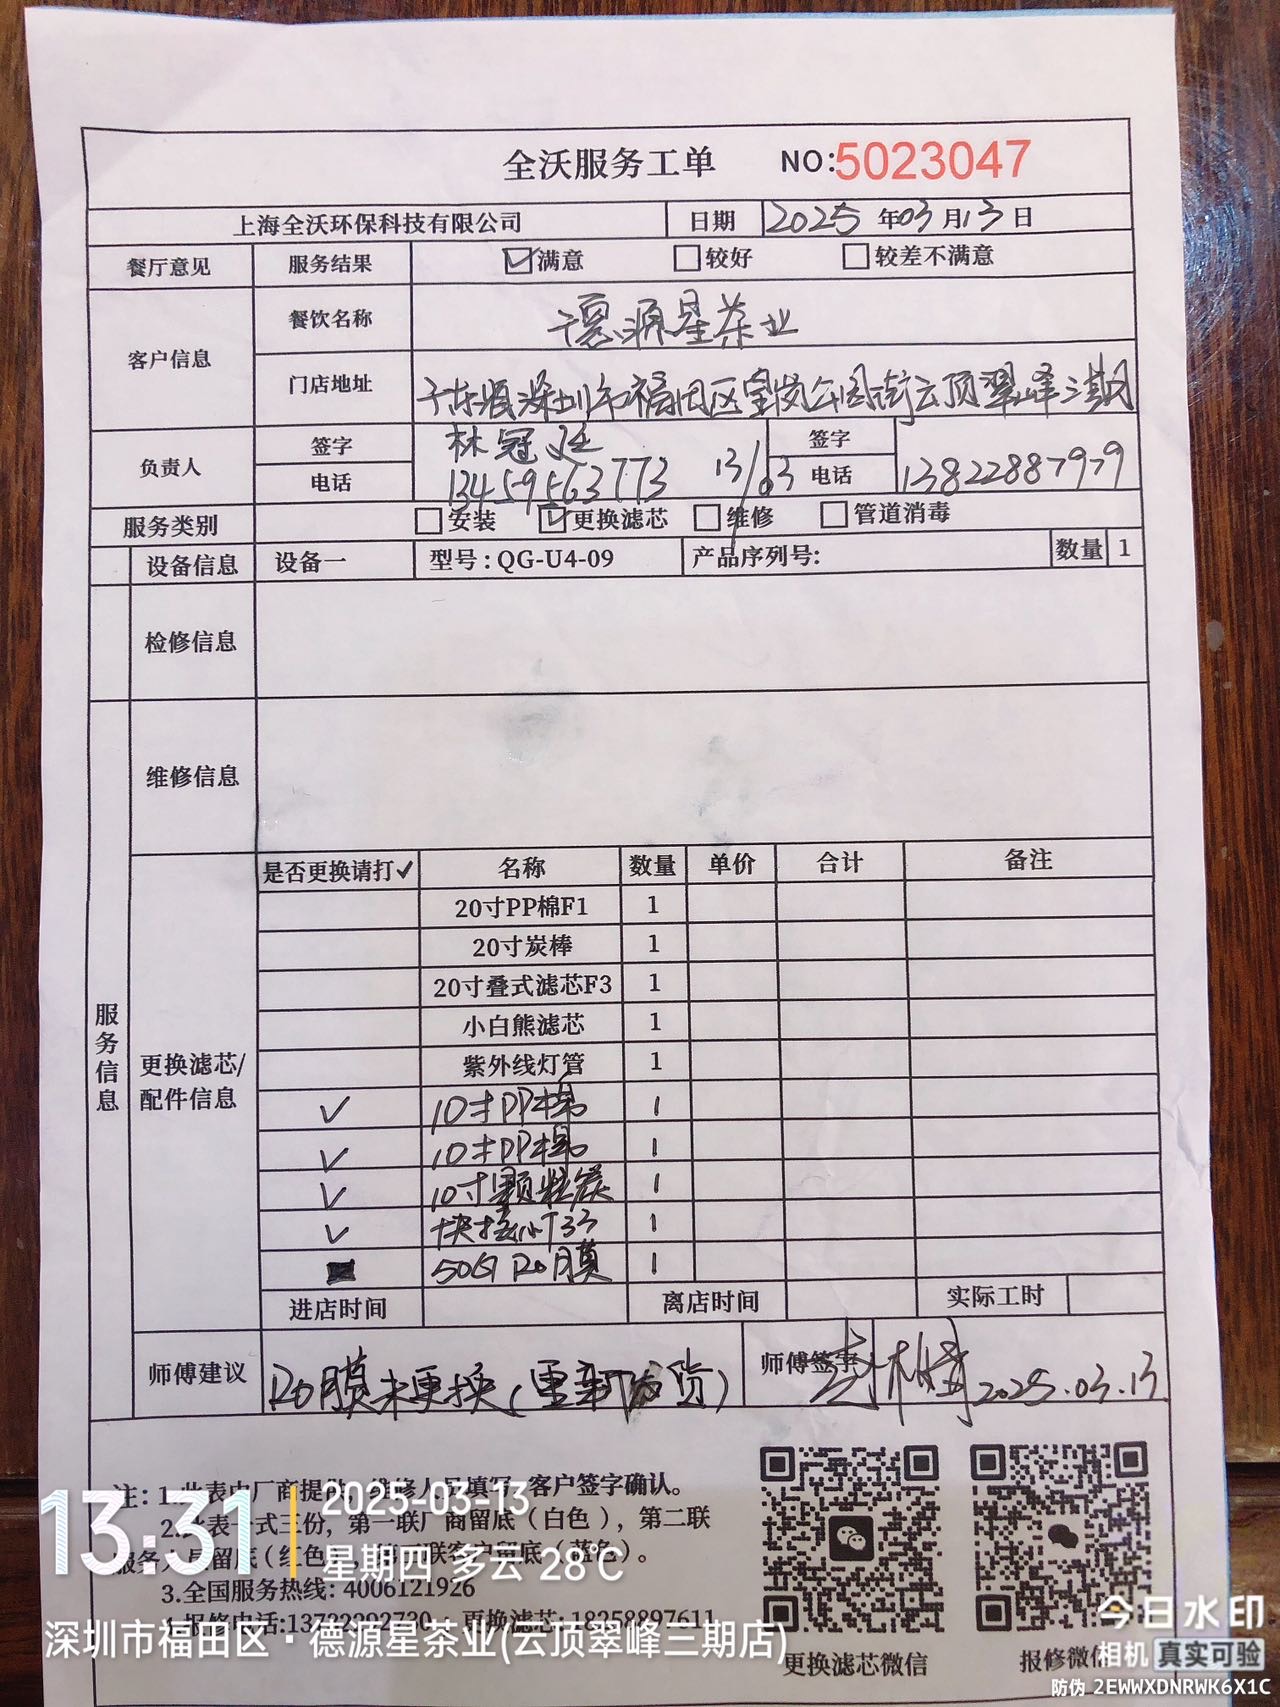 全沃服务工单 NO:5023047
上海全沃环保科技有限公司 日期 2025 年03月13日
餐厅意见 服务结果 ☑满意 ☐较好 ☐较差不满意
客户信息 餐饮名称 德源星茶业
门店地址 广东省深圳市福田区皇岗公园街云顶翠峰三期
负责人 签字 林冠廷 13/03 签字
电话 13459563773 电话 13822887979
服务类别 ☐安装 ☑更换滤芯 ☐维修 ☐管道消毒
设备信息 设备一 型号:QG-U4-09 产品序列号: 数量 1
检修信息
维修信息
服务信息
更换滤芯/配件信息
是否更换请打✓ 名称 数量 单价 合计 备注
20寸PP棉F1 1
20寸炭棒 1
20寸叠式滤芯F3 1
小白熊滤芯 1
紫外线灯管 1
✓ 10寸PP棉 1
✓ 10寸PP棉 1
✓ 10寸颗粒炭 1
✓ 快接小T33 1
50G RO膜 1
进店时间 离店时间 实际工时
师傅建议 RO膜未更换(重新发货) 师傅签字 2025.03.13
注: 1.此表由厂商提供,维修人员填写,客户签字确认。
2.此表一式三份，第一联厂商留底（白色），第二联
服务人员留底（红色），第三联客户留底（蓝色）。
3.全国服务热线: 4006121926
4.报修电话:13722292730 更换滤芯:18258897611
更换滤芯微信 报修微信
13:31 2025-03-13
星期四 多云 28℃
深圳市福田区·德源星茶业(云顶翠峰三期店)
今日水印
相机 真实可验
防伪 2EWWXDNRWK6X1C